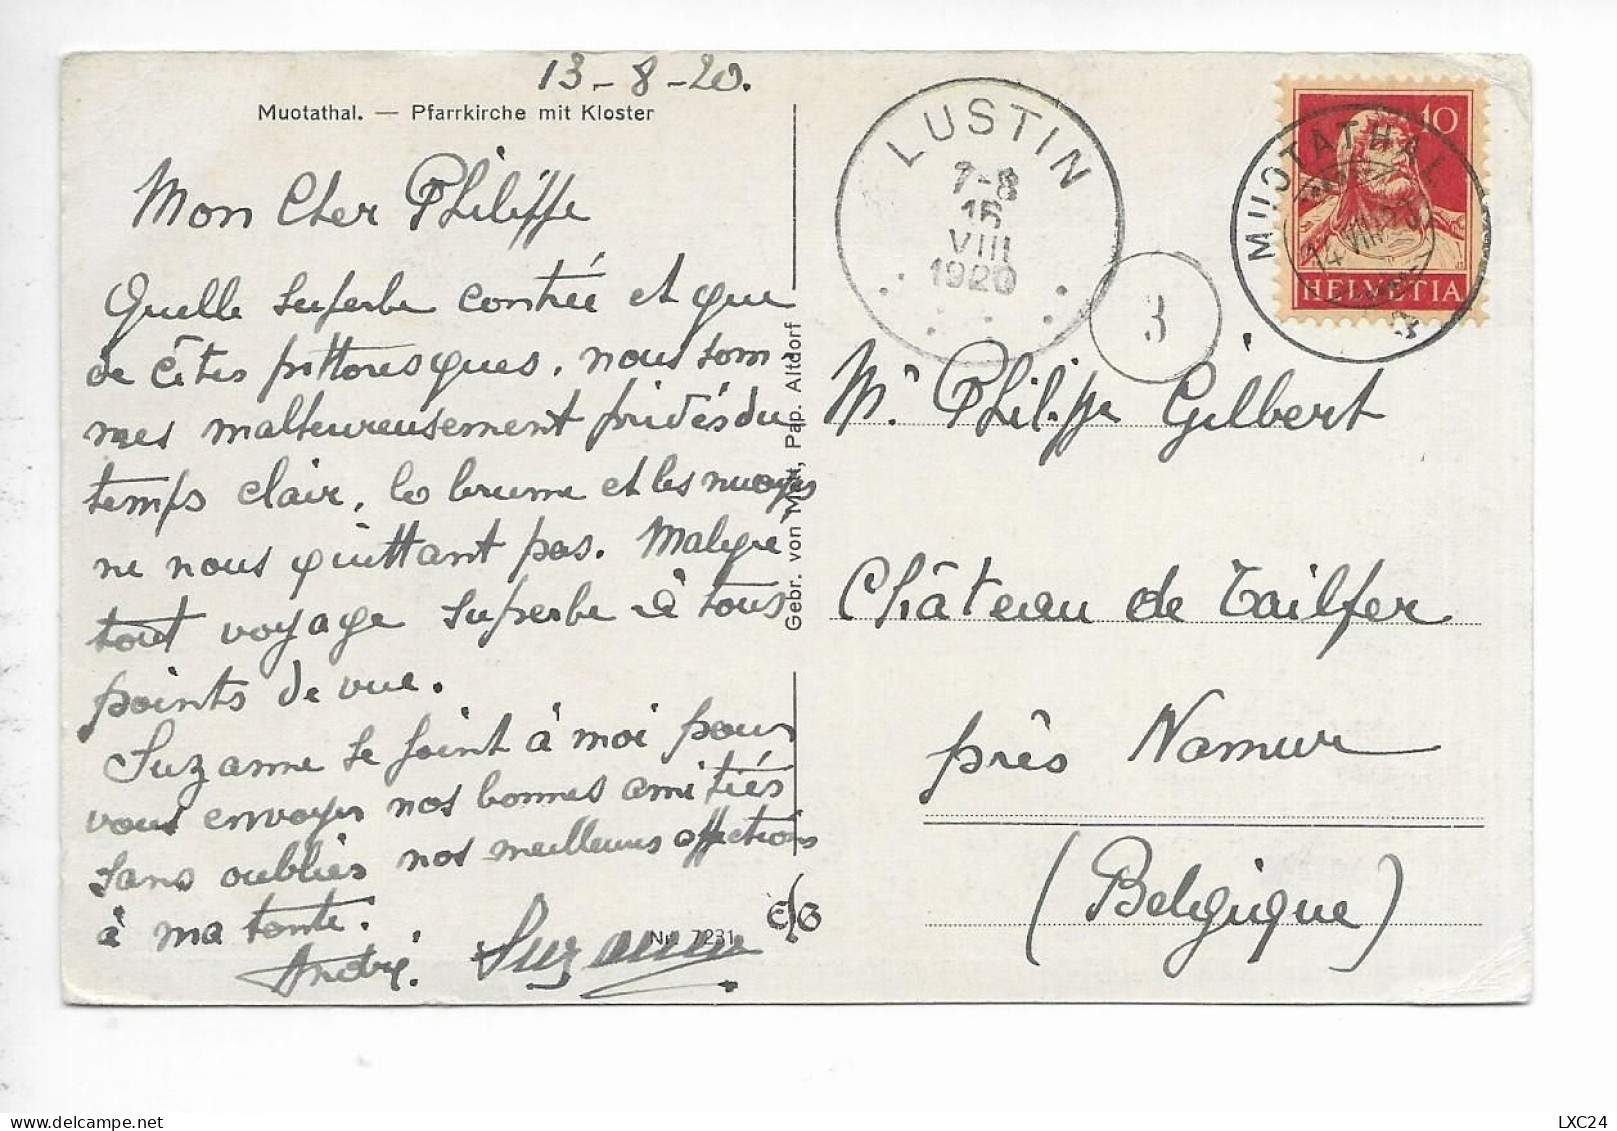 13-8-20.
Muotathal. — Pfarrkirche mit Kloster
Mon Cher Philippe
Quelle superbe contrée et que
de sites pittoresques, nous som-
mes malheureusement privés du
temps clair, la brume et les nuages
ne nous quittant pas. Malgré
tout voyage superbe à tous
points de vue.
Suzanne se joint à moi pour
vous envoyer nos bonnes amitiés
sans oublier nos meilleures affections
à ma tante.
André. Suzanne
Nr. 7231
Gebr. von Matt, Pap. Altdorf
LUSTIN
7-8
16
VIII
1920
3
10
HELVETIA
MUOTATHAL
14 VIII 20
Mr Philippe Gilbert
Château de Tailfer
près Namur
(Belgique)
LXC24